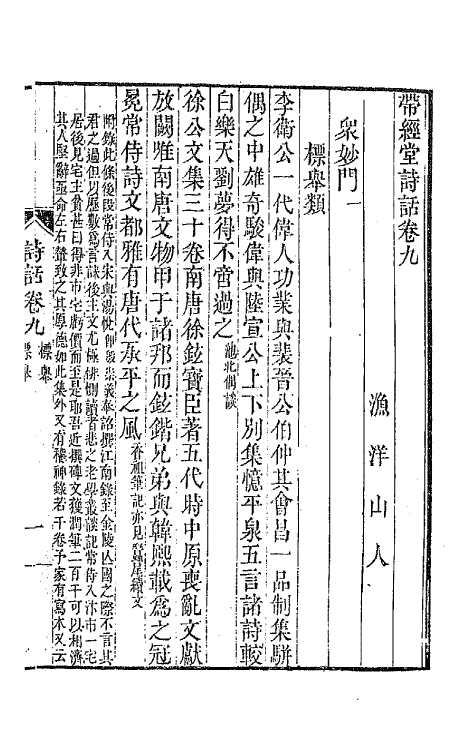 帶經堂詩話卷九
漁洋山人
衆妙門一
標舉類
李衛公一代偉人功業與裴晉公伯仲其會昌一品制集駢
偶之中雄奇駿偉與陸宣公上下別集憶平泉五言諸詩較
白樂天劉夢得不啻過之池北偶談
徐公文集三十卷南唐徐鉉寶臣著五代時中原喪亂文獻
放闕唯南唐文物甲于諸邦而鉉鍇兄弟與韓熙載爲之冠
冕常侍詩文都雅有唐代承平之風香祖筆記亦見蠶尾續文
附錄此條後段常侍入宋與湯悅奉詔撰江南錄至金陵亾國之際不言其
君之過但以歷數爲言誄後主文尤極悱惻讀者悲之老學叢談記常侍入汴市一宅
居後見宅主貧甚曰得非市宅虧價而至是耶吾近撰碑文獲潤筆二百千可以相濟
其人堅辭亟命左右輦致之其厚德如此集外又有稽神錄若干卷予家有寫本又云
詩話卷九
標舉
一